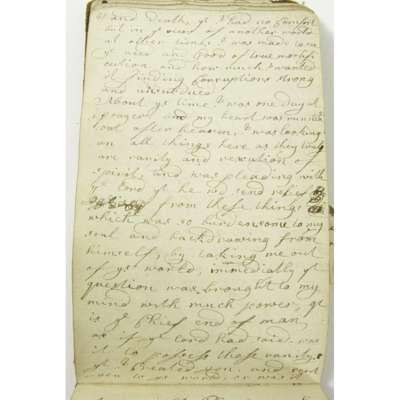 and death, yt I had no comfort
but in ye of another world
at other times I was made to see
ye was need of true mortifi
cation and how much I wanted
it finding corruptions strong
and unsubdued
About ys time I was one day at
prayer and my heart was
out after heaven, I was looking
on all things here as they truly
are vanity and vexation of
spirit, and was pleading with
ye Lord yt he wd
from these things
which was so burdensome to my
soul and backdrawing from
himself, by taking me out
of ys world, immediatly yt
question was brought to my
mind with much power, qt
is ye chief end of man
as if ye Lord had said was
it to possess these vanitys
yt I created you, and sent
you to ys world, or was it